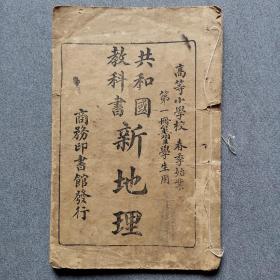 高等小學校 春季始業
第一冊 學生用
共和國
教科書
新地理
商務印書館發行